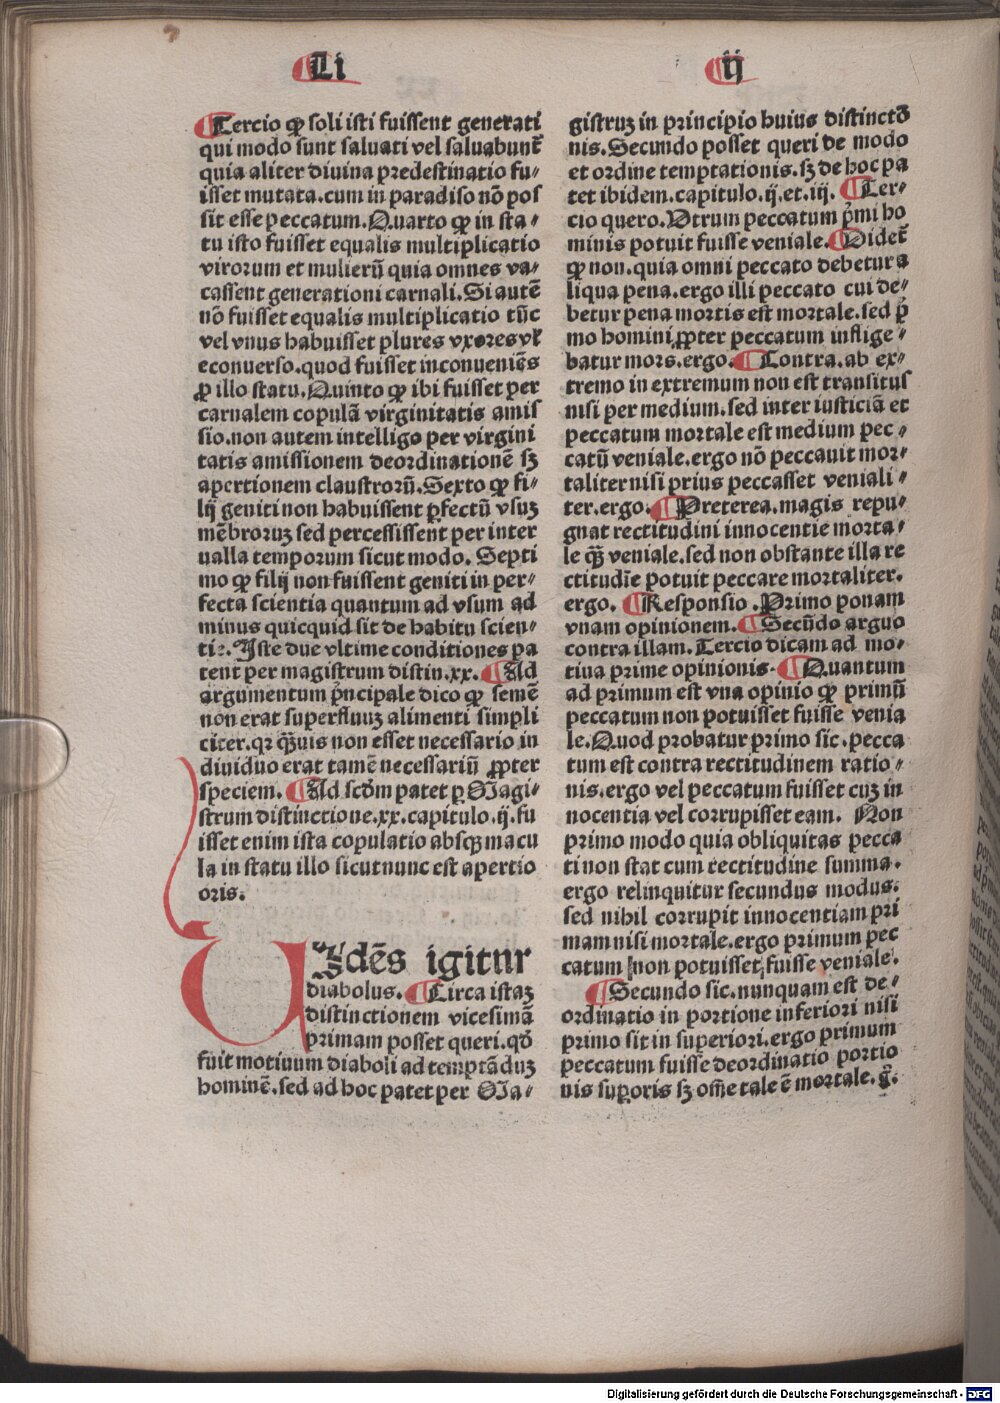 ¶Li
¶ij
¶Tercio ꝙ soli isti fuissent generati
qui modo sunt saluati vel saluabunt᷑
quia aliter diuina predestinatio fu⸗
isset mutata.cum in paradiso nō pos
sit esse peccatum.Quarto ꝙ in sta⸗
tu isto fuisset equalis multiplicatio
virorum et mulierū quia omnes va⸗
cassent generationi carnali.Si autē
nō fuisset equalis multiplicatio tūc
vel vnus habuisset plures vxores vƚ
econuerso.quod fuisset inconueniēs
ꝓ illo statu.Quinto ꝙ ibi fuisset per
carnalem copulā virginitatis amis
sio.non autem intelligo per virgini
tatis amissionem deordinationē sꝫ
apertionem claustrorū.Sexto ꝙ fi⸗
lij geniti non habuissent ꝑfectū vsuꝫ
mēbroruꝫ sed percessissent per inter
ualla temporum sicut modo. Septi
mo ꝙ filij non fuissent geniti in per⸗
fecta scientia quantum ad vsum ad
minus quicquid sit de habitu scien⸗
tie. Iste due vltime conditiones pa
tent᷑ per magistrum distin.xx. ¶Ad
argumentum pͥncipale dico ꝙ semē
non erat superfluuꝫ alimenti simpli
citer.qꝛ ꝙ̄uis non esset necessario in
diuiduo erat tamē necessariū ꝓpter
speciem. ¶Ad scdm patet ꝑ Magi⸗
strum distinctione.xx.capitulo.ij.fu
isset enim ista copulatio absqꝫ macu
la in statu illo sicut nunc est apertio
oris.
UIdēs igitur
diabolus. ¶Circa istaꝫ
distinctionem vicesimā
primam posset queri.qd̄
fuit motiuum diaboli ad temptāduꝫ
hominē.sed ad hoc patet per Ma⸗
gistruꝫ in principio huius distinctō
nis.Secundo posset queri de modo
et ordine temptationis.sꝫ de hoc pa
tet ibidem.capitulo.ij.et.iij. ¶Ter⸗
cio quero.Vtrum peccatum pͥmi ho
minis potuit fuisse veniale. ¶Videt᷑
ꝙ non.quia omni peccato debetur a
liqua pena.ergo illi peccato cui de⸗
betur pena mortis est mortale.sed pͥ
mo homini ꝓpter peccatum inflige⸗
batur mors.ergo. ¶Contra.ab ex⸗
tremo in extremum non est transitus
nisi per medium.sed inter iusticiā et
peccatum mortale est medium pec⸗
catū veniale.ergo nō peccauit mor⸗
taliter nisi prius peccasset veniali⸗
ter.ergo. ¶Preterea.magis repu⸗
gnat rectitudini innocentie morta⸗
le ꝙ̄ veniale.sed non obstante illa re
ctitudīe potuit peccare mortaliter.
ergo. ¶Responsio .Primo ponam
vnam opinionem. ¶Secūdo arguo
contra illam. Tercio dicam ad mo⸗
tiua prime opinionis. ¶Quantum
ad primum est vna opinio ꝙ primū
peccatum non potuisset fuisse venia
le.Quod probatur primo sic.pecca
tum est contra rectitudinem ratio⸗
nis.ergo vel peccatum fuisset cuꝫ in
nocentia vel corrupisset eam. Non
primo modo quia obliquitas pecca
ti non stat cum rectitudine summa.
ergo relinquitur secundus modus.
sed nihil corrupit innocentiam pri
mam nisi mortale.ergo primum pec
catum non potuisset fuisse veniale.
¶Secundo sic.nunquam est de⸗
ordinatio in portione inferiori nisi
primo sit in superiori.ergo primum
peccatum fuisse deordinatio portio
nis suꝑoris sꝫ om̄e tale ē mortale.gͦ.
Digitalisierung gefördert durch die Deutsche Forschungsgemeinschaft - DFG